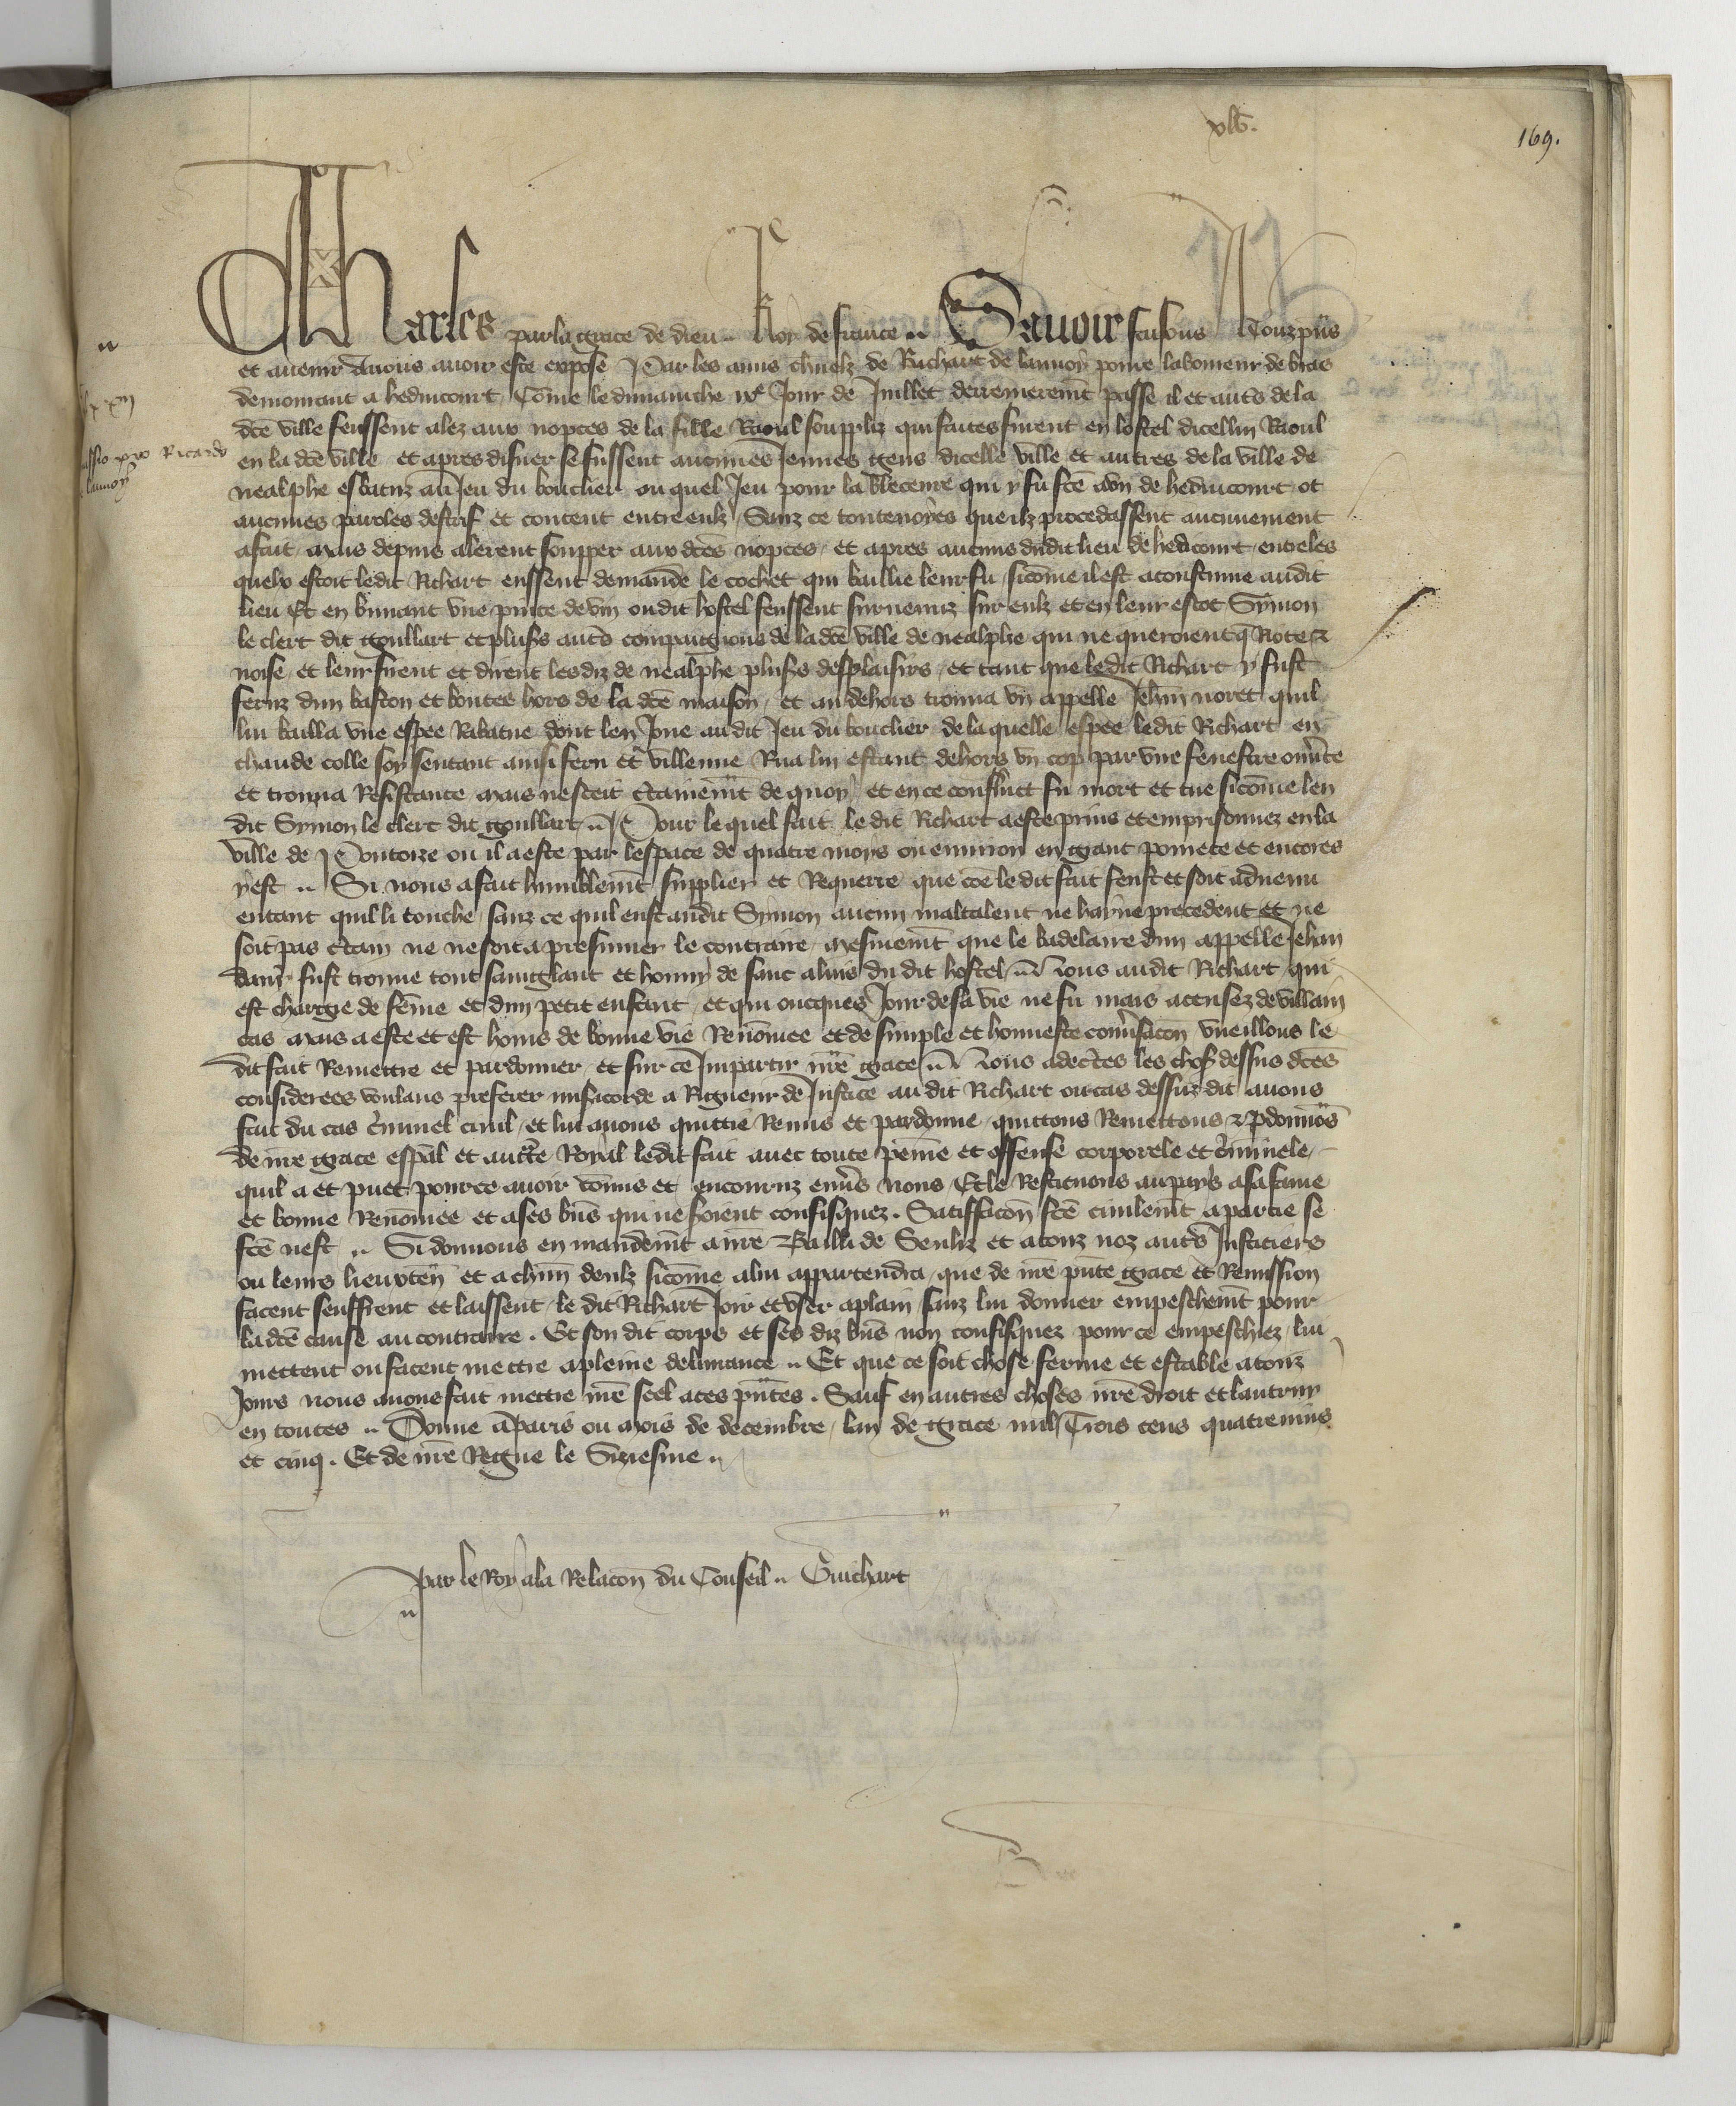 xlv.
169.
Charles par la grace de dieu .. Roy de france .. Savoir faisons A Touz pns
et avenir A nous avoir este expose Par les amis chnelz de Richart de launoy povre laboureur de bras
demourant a hedincourt Come le dimanche ixe Jour de Juillet derrenieremt passe il et auts de la
dce ville feussent alez aux nopces de la fille Raoul souppliz qui faites furent en lostel dicellui Raoul
en la dce ville et apres disner se fussent aucunes Jeunes gens dicelle ville et autres de la ville de
nealphe esbatuz au Jeu du bouclier ou quel Jeu pour la bleceure qui y fu fce a un de hedincourt ot
aucunes paroles destrif et content entre eulz Sanz ce toutevoies que ilz procedassent aucunement
a fait mais depuis alerent soupper aux dces nopces et apres aucuns dudit lieu de hedicourt entre les
quelx estoit ledit Richart eussent demande le cochet qui baillie leur fu sicome il est acoustume audit
lieu Et en buvant une pinte de vin oudit hostel feussent survenuz sur eulz et en leur escot Symon
le clert dit goullart et plus auts compaignons de la dce ville de nealphe qui ne queroient q Riote et
noise et leur firent et dirent lesdiz de nealphe plus desplaisirs et tant que ledit Richart y fust
feruz dun baston et boutes hors de la dce maison et au dehors trouva un appelle Jehan noret quil
lui bailla une espee Rabatue dont len Joue audit Jeu du bouclier de laquelle espee ledit Richart en
chaude colle soy sentant ainsi feru et villenne Rua lui estant dehors un cop par une fenestre ouvte
et trouva Resistance mais ne sceit ctainemt de quoy et en ce conflict fu mort et tue sicome len
dit Symon le clerc dit goullart .. Pour le quel fait le dit Richart a este prins et emprisonnez en la
ville de Pontoize ou il a este par lespace de quatre moys ou environ en grant povrete et encores
y est .. Si nous a fait humblemt supplier et Requerre que coe le dit fait feust et soit advenu
entant quil li touche sanz ce quil eust audit Symon aucun maltalent ne hayne precedent et ne
soit pas ctain ne ne soit a presumer le contraire mesmemt que le badelaire dun appelle Jehan
fust trouve tout sanglant et honny de sanc a luis du dit hostel .. Nous audit Richart qui
est chargie de feme et dun petit enfant et qui oncques Jour de sa vie ne fu mais accusez de villain
cas mais a este et est homs de bonne vie Renomee et de simple et honneste convsacon vueillons le
dit fait Remettre et pardonner et sur ce Impartir nre grace .. Nous adectes les chos dessus dces
considerees voulans preferer misicorde a Rigueur de Justice audit Richart ou cas dessuz dit avons
fait du cas criminel civil et lui avons quittie Remis et pardonne quittons Remettons et pdonnos
de nre grace espal et auctte Royal ledit fait avec toute peine et offense corporele et criminele
quil a et puet pour ce avoir comis et encouruz envs nous Et le Restituons au pays a sa fame
et bonne Renomee et a ses bns qui ne soient confisquez . Satisfacon fce civilemt a partie se
fce nest .. Si donnons en mandemt a nre Bailli de Senliz et a touz noz auts Justiciers
ou leurs lieuxten et a chun deulz sicome a lui appartendra que de nre pnte grace et Remission
facent seuffrent et laissent le dit Richart Joir et user a plain sanz lui donner empeschemt pour
la dce cause au contraire . Et son dit corps et ses diz bns non confisquez pour ce empeschiez lui
mettent ou facent mettre a pleine delivrance .. Et que ce soit chose ferme et estable a touz
Jours nous avons fait mettre nre scel a ces pntes . Sauf en autres choses nre droit et lautruy
en toutes .. Donne a Paris ou mois de decembre lan de grace mil Trois cens quatrevins
et cinq . Et de nre Regne le Siziesme ..
Par le Roy a la Relacon du Conseil .. Guichart
pro Ricardo
launoy